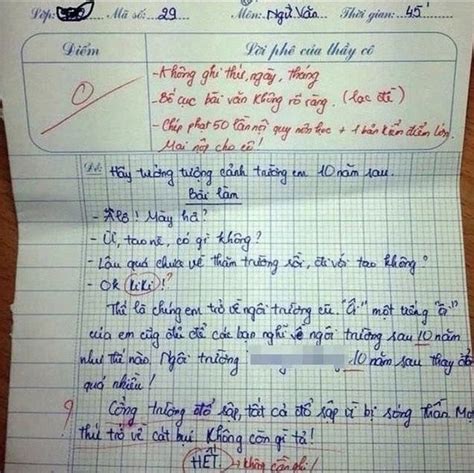 Lớp: Mã số: 29 Môn: Ngữ Văn Thời gian: 45'
Điểm Lời phê của thầy cô
0
- Không ghi thứ, ngày, tháng
- Bố cục bài văn không rõ ràng. (lạc đề)
- Chép phạt 50 lần nội quy môn học + 1 bản kiểm điểm lớn.
Mai nộp cho cô!
Đề: Hãy tưởng tượng cảnh trường em 10 năm sau.
Bài làm
- Alô! Mày hả?
- Ừ, tao nè, có gì không?
- Lâu quá chưa về thăm trường rồi, đi với tao không?
- Ok kiki!?
Thế là chúng em trở về ngôi trường cũ. "Ôi" một tiếng "ôi"
của em cũng đủ để các bạn nghĩ về ngôi trường sau 10 năm
như thế nào. Ngôi trường 10 năm sau thay đổi
quá nhiều!
? Cổng trường đổ sập, tất cả đổ sập vì bị sóng thần. Mọi
thứ trở về cát bụi không còn gì tả!
HẾT. → không cần ghi!